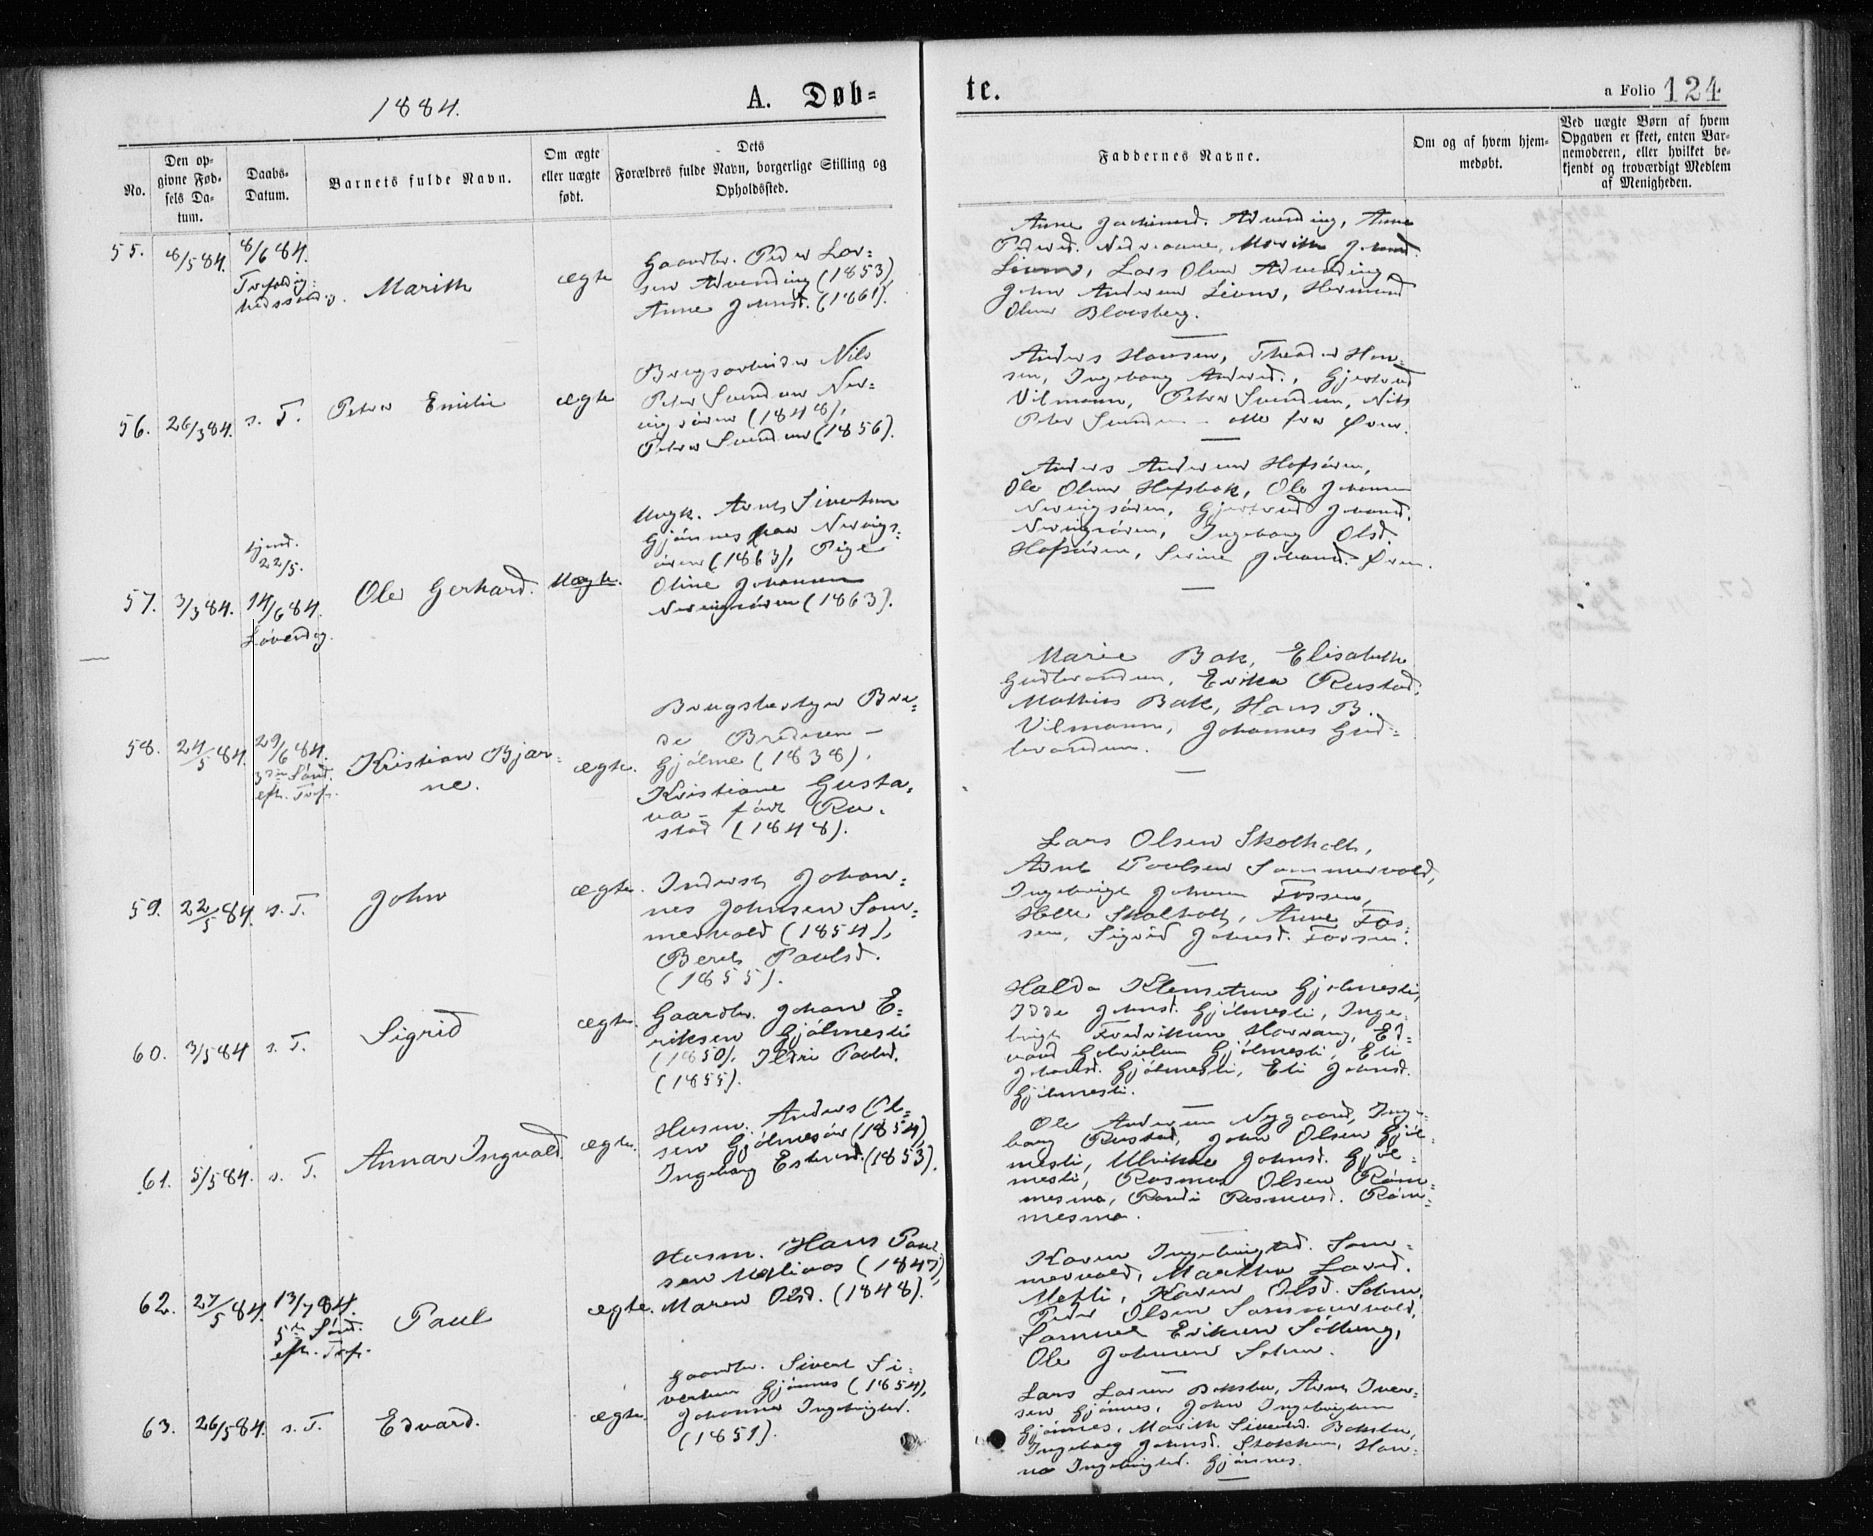 1884.
A. Døb=
te.
a Folio 124
No.
Den op-
givne Fød-
sels Da-
tum.
Daabs-
Datum.
Barnets fulde Navn.
Om ægte
eller uægte
født.
Dets
Forældres fulde Navn, borgerlige Stilling og
Opholdssted.
Faddernes Navne.
Om og af hvem hjem-
medøbt.
Ved uægte Børn af hvem
Opgaven er skeet, enten Bar-
nemoderen, eller hvilket be-
kjendt og troværdigt Medlem
af Menigheden.
55. 8/5 84. 8/6 84.
Trefoldig-
hedssøndag.
Marith
ægte
Gaardbr. Peder Lar-
sen Advending (1853),
Anne Johnsd. (1861).
Anne Advending, Anne
Lars Olsen Advending,
John Andersen Hermund
Olsen Blaasberg.
56. 26/3 84. s. T. Petra Emilie ægte
Brugsarbeider Nils
Peter Svendsen Ner-
vigsøren (1848),
Petra Svendsen (1856).
Anders Hansen, Theodor Han-
sen, Ingeborg Andersd., Gjertrud
Vilmann, Petra Svendsen, Nils
Peter Svendsen - alle fra Øren.
57. 3/3 84. hjemd.
22/5.
14/6 84.
Løverdag.
Ole Gerhard. Uægte.
Ungk. Arnt Sivertsen
Gjønnes paa Nervigs-
øren (1863), Pige
Oline Johansen
Nervigsøren (1863).
Anders Andersen Hofsøren,
Ole Olsen Hofsbak, Ole Johansen
Nervigsøren, Gjertrud Johansd.
Nervigsøren, Ingeborg Olsd.
Hofsøren, Serine Johansd. Øren.
58. 24/5 84. 29/6 84.
3die Sønd.
eft. Tref.
Kristian Bjar-
ne.
ægte.
Brugsbestyrer Bre-
de Bredesen
Gjølme (1838),
Kristiane Gusta-
va - født Ru-
stad (1848).
Marie Bak, Elisabeth
Gudbrandsen, Erika Rustad,
Mathias Bak, Hans B.
Vilmann, Johannes Gud-
brandsen.
59. 22/5 84. s. T. John ægte.
Inderst Johan-
nes Johnsen Som-
mervold (1854),
Berit Paulsd.
(1855).
Lars Olsen Skolholt,
Arnt Paulsen Sommervold,
Ingebrigt Johnsen Fossen,
Skolholt, Anne Fos-
sen, Sigrid Johnsd. Fossen.
60. 3/5 84 s. T. Sigrid ægte.
Gaardbr. Johan E-
riksen Gjølmesli
(1850), Ildri Paulsd.
(1855).
Halda Klemetsen Gjølmesli,
Johnsd. Gjølmesli, Inge-
brigt Fredriksen Ed-
vard Gjølmesli, Eli
Johansd. Gjølmesli, Eli Johnsd.
Gjølmesli.
61. 5/5 84. s. T. Annar Ingvald ægte.
Husm. Anders Ol-
sen Gjølmesøier (1854),
Ingeborg (1853).
Ole Andersen Nygaard, Inge-
borg Rustad, John Olsen Gjøl-
mesli, Ulrikke Johnsd. Gjøl-
mesli, Rasmus Olsen Røm-
mesmo, Randi Rasmusd. Røm-
mesmo.
62. 27/5 84. 13/7 84.
5te Sønd.
eft. Tref.
Paul ægte.
Husm. Hans Paul-
sen (1847),
Maren Olsd. (1848).
Karen Ingebrigtsd. Som-
mervold, Marthe Larsd.
Mefli, Karen Olsd.
Peder Olsen Sommervold,
Samuel Eriksen
Ole Johnsen
63. 26/5 84. s. T. Edvard. ægte.
Gaardbr. Sivert Si-
vertsen Gjønnes (1854),
Johanna Ingebrigtsd.
(1851).
Lars Larsen Arnt Iver-
sen Gjønnes, John Ingebrigtsen
Gjønnes, Marith Sivertsd.
Ingeborg Johnsd. Stokken, Han-
na Ingebrigtsd. Gjønnes.